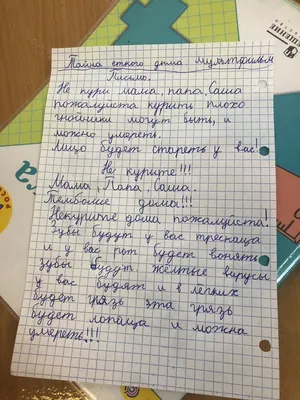 Тайна едкого дыма мультфильм
Письмо.
Не кури мама, папа, Саша
пожалуйста курить плохо
гнойники могут быть, и
можно умереть.
Лицо будет стареть у вас!
Не курите!!!
Мама, Папа, Саша.
Тембольше дома!!!
Некурите дома пожалуйста!
Зубы будут у вас трескаца
и у вас рот будет вонять
зубы будут жёлтые вирусы
у вас будят и в легких
будет грязь эта грязь
будет лопаца и можна
умереть!!!